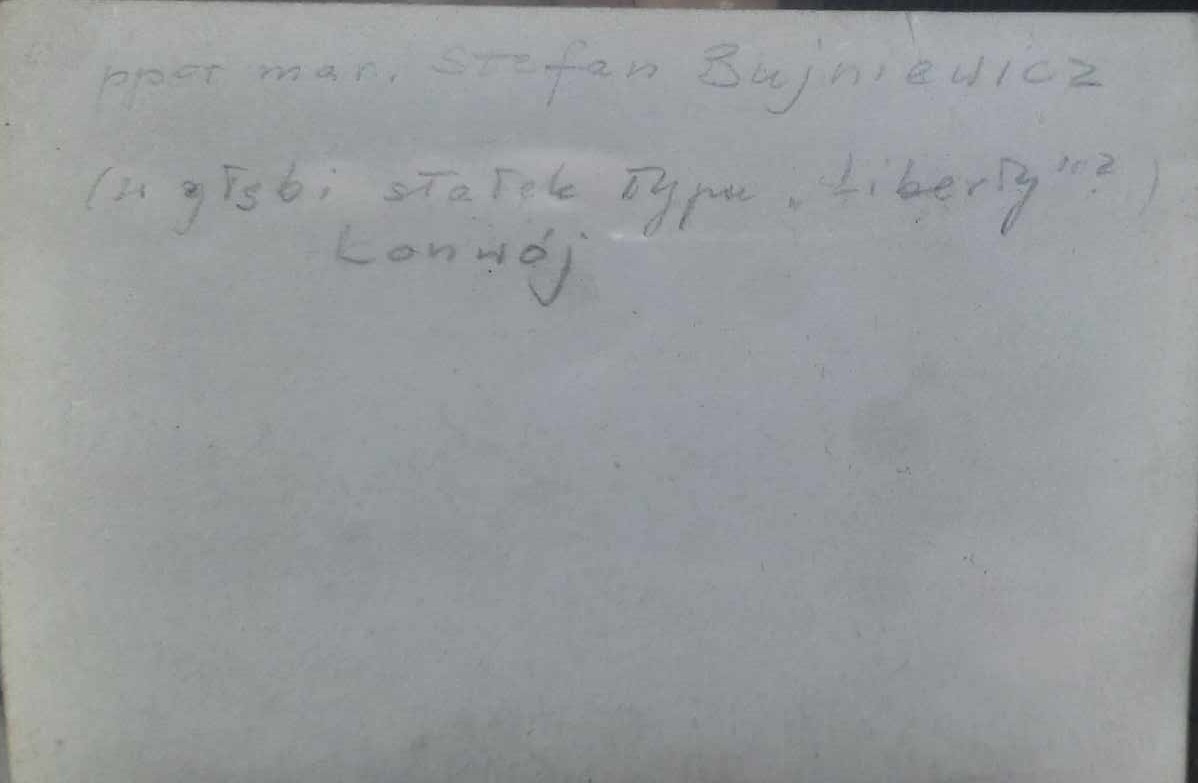 ppor mar. Stefan Bujniewicz
(w głębi statek typu „Liberty"?)
konwój